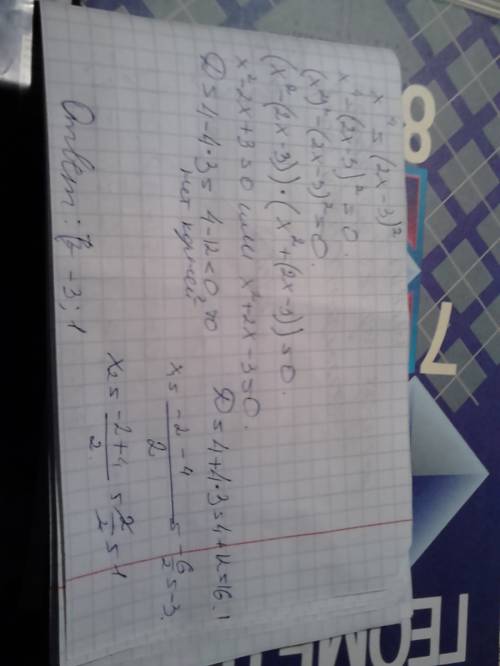 x⁴ = (2x-3)²
x⁴ - (2x-3)² = 0.
(x²)² - (2x-3)² = 0.
(x² - (2x-3)) · (x² + (2x-3)) = 0.
x² - 2x + 3 = 0 или x² + 2x - 3 = 0.
D = 4 - 4·3 = 4 - 12 < 0, то
нет корней
D = 4 + 4·3 = 4 + 12 = 16.
x = (-2 - 4)/2 = -6/2 = -3.
x₂ = (-2 + 4)/2 = 2/2 = 1
Ответ: -3; 1
8
7